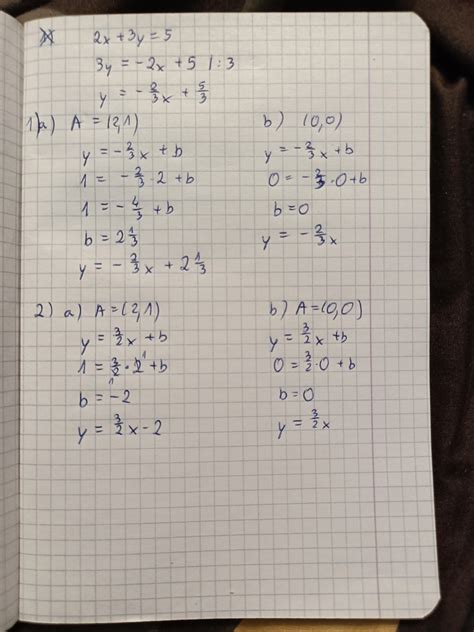 2x + 3y = 5
3y = -2x + 5 | :3
y = -2/3x + 5/3
1) a) A = (2,1)
y = -2/3x + b
1 = -2/3 · 2 + b
1 = -4/3 + b
b = 2 1/3
y = -2/3x + 2 1/3
b) (0,0)
y = -2/3x + b
0 = -2/3 · 0 + b
b = 0
y = -2/3x
2) a) A = (2,1)
y = 3/2x + b
1 = 3/2 · 2 + b
b = -2
y = 3/2x - 2
b) A = (0,0)
y = 3/2x + b
0 = 3/2 · 0 + b
b = 0
y = 3/2x